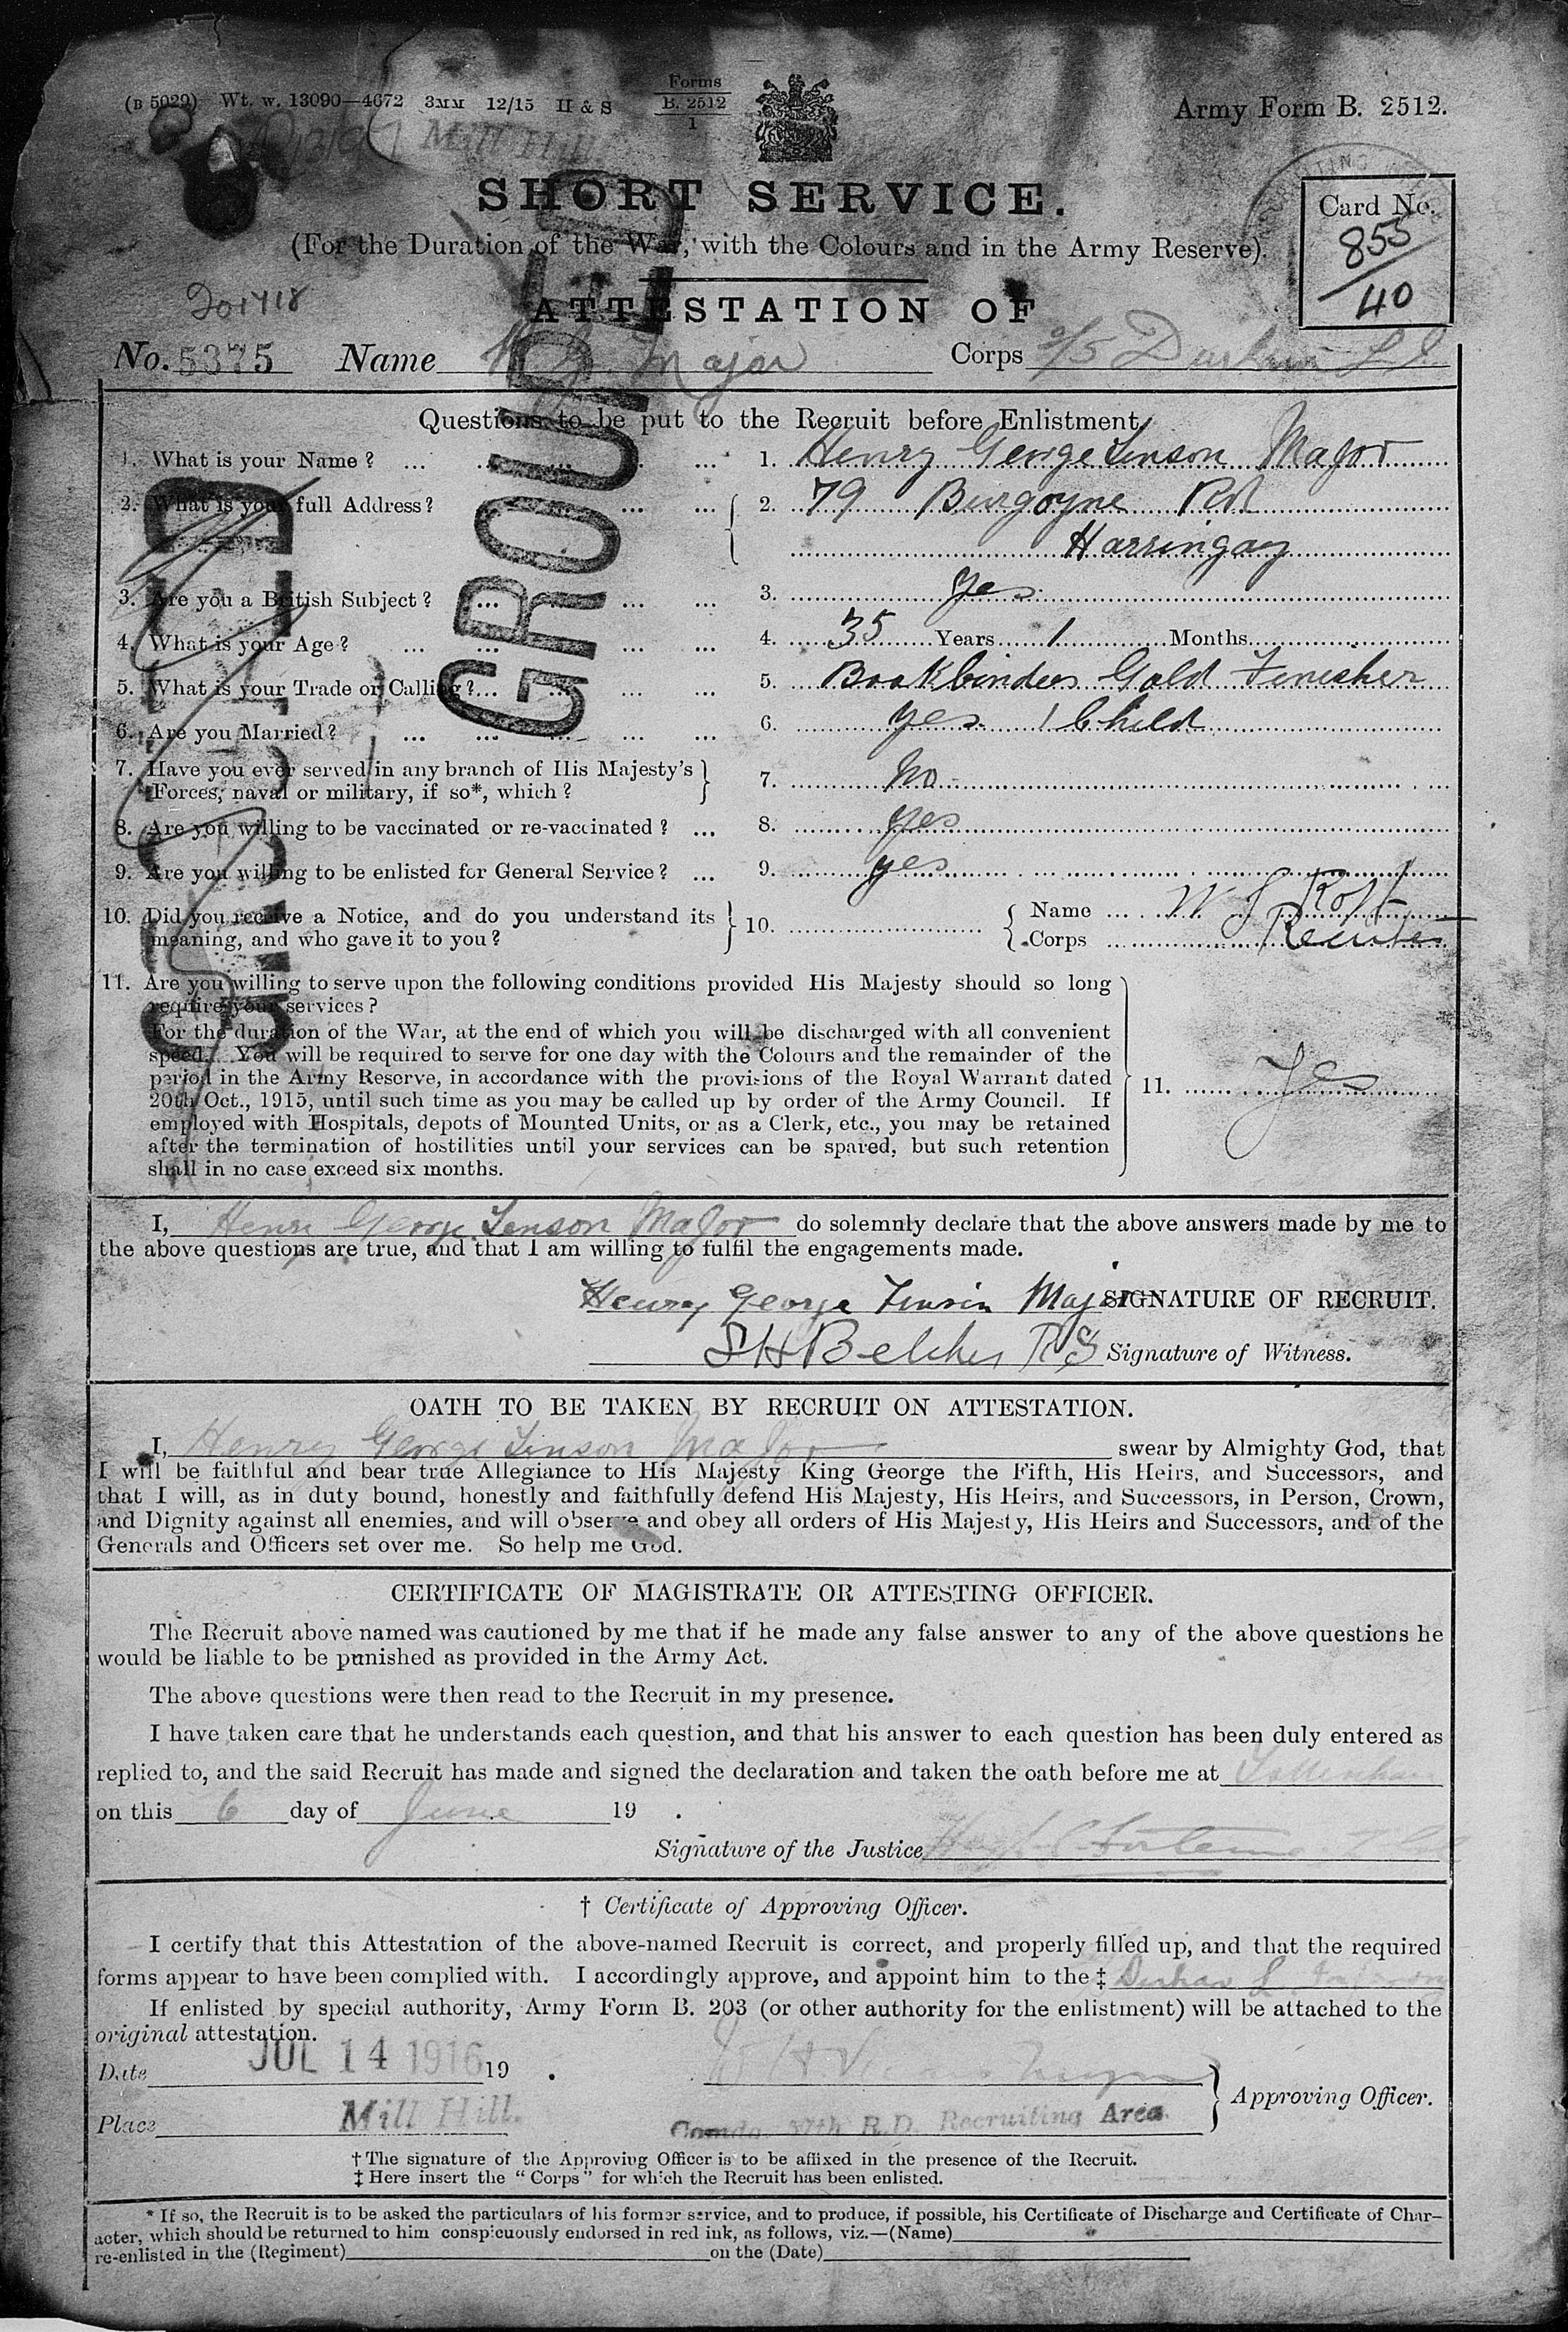 (B 5029) Wt. w. 13090—4672 3MM 12/15 H & S Forms B. 2512 1
Army Form B. 2512.
Mill Hill
SHORT SERVICE.
Card No. 855/40
(For the Duration of the War, with the Colours and in the Army Reserve).
201718
ATTESTATION OF
No. 5375 Name H. G. Major Corps 2/5 Durham L I
GROUPED
Questions to be put to the Recruit before Enlistment.
1. What is your Name? ... 1. Henry George Tenson Major
2. What is your full Address? ... 2. 79 Burgoyne Rd
Harringay
3. Are you a British Subject? ... 3. Yes
4. What is your Age? ... 4. 35 Years 1 Months
5. What is your Trade or Calling? ... 5. Bookbinders Gold Finisher
6. Are you Married? ... 6. Yes 1 Child
7. Have you ever served in any branch of His Majesty's
Forces, naval or military, if so*, which? 7. No
8. Are you willing to be vaccinated or re-vaccinated? ... 8. Yes
9. Are you willing to be enlisted for General Service? ... 9. yes
10. Did you receive a Notice, and do you understand its
meaning, and who gave it to you? 10. Name W
Corps
11. Are you willing to serve upon the following conditions provided His Majesty should so long
require your services?
For the duration of the War, at the end of which you will be discharged with all convenient
speed. You will be required to serve for one day with the Colours and the remainder of the
period in the Army Reserve, in accordance with the provisions of the Royal Warrant dated
20th Oct., 1915, until such time as you may be called up by order of the Army Council. If
employed with Hospitals, depots of Mounted Units, or as a Clerk, etc., you may be retained
after the termination of hostilities until your services can be spared, but such retention
shall in no case exceed six months.
11. Yes
I, Henry George Tenson Major do solemnly declare that the above answers made by me to
the above questions are true, and that I am willing to fulfil the engagements made.
Henry George Tenson Major SIGNATURE OF RECRUIT.
S H Belcher R S Signature of Witness.
OATH TO BE TAKEN BY RECRUIT ON ATTESTATION.
I, Henry George Tenson Major swear by Almighty God, that
I will be faithful and bear true Allegiance to His Majesty King George the Fifth, His Heirs, and Successors, and
that I will, as in duty bound, honestly and faithfully defend His Majesty, His Heirs, and Successors, in Person, Crown,
and Dignity against all enemies, and will observe and obey all orders of His Majesty, His Heirs and Successors, and of the
Generals and Officers set over me. So help me God.
CERTIFICATE OF MAGISTRATE OR ATTESTING OFFICER.
The Recruit above named was cautioned by me that if he made any false answer to any of the above questions he
would be liable to be punished as provided in the Army Act.
The above questions were then read to the Recruit in my presence.
I have taken care that he understands each question, and that his answer to each question has been duly entered as
replied to, and the said Recruit has made and signed the declaration and taken the oath before me at Tottenham
on this 6 day of June 19 .
Signature of the Justice
† Certificate of Approving Officer.
I certify that this Attestation of the above-named Recruit is correct, and properly filled up, and that the required
forms appear to have been complied with. I accordingly approve, and appoint him to the ‡ Durham L. Infantry
If enlisted by special authority, Army Form B. 203 (or other authority for the enlistment) will be attached to the
original attestation.
Date JUL 14 1916 19 .
Approving Officer.
Place Mill Hill. Comdg. 57th R.D. Recruiting Area.
† The signature of the Approving Officer is to be affixed in the presence of the Recruit.
‡ Here insert the "Corps" for which the Recruit has been enlisted.
* If so, the Recruit is to be asked the particulars of his former service, and to produce, if possible, his Certificate of Discharge and Certificate of Char-
acter, which should be returned to him conspicuously endorsed in red ink, as follows, viz.—(Name)
re-enlisted in the (Regiment) on the (Date)